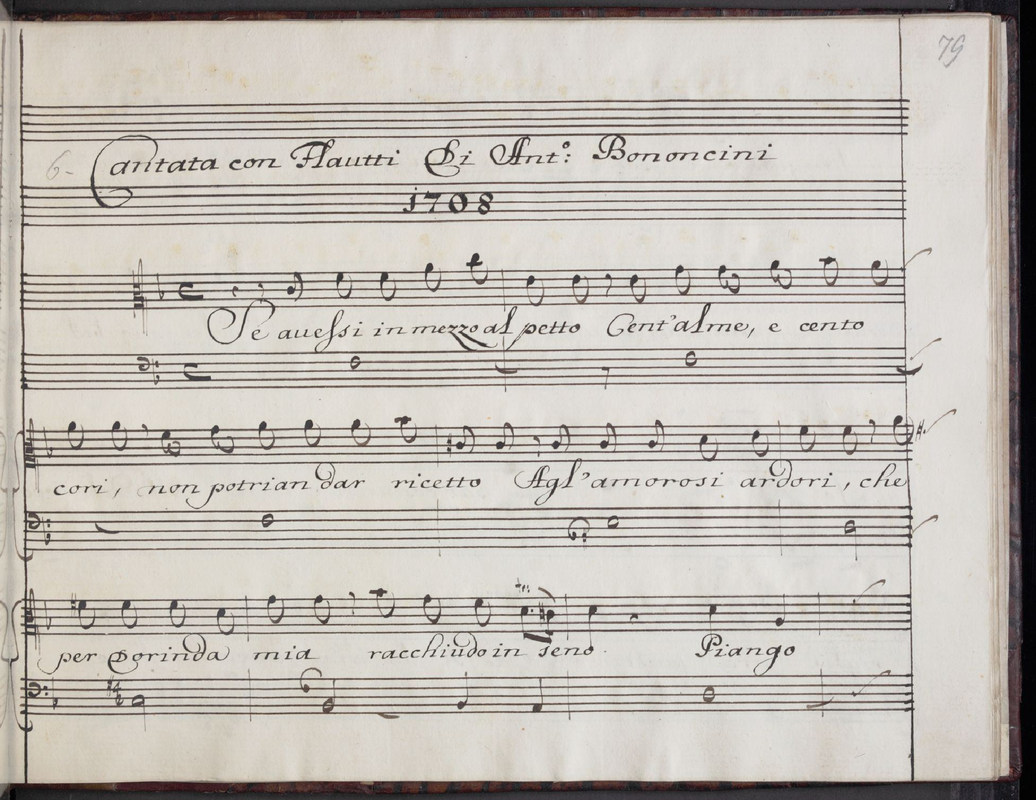 79
6- Cantata con Flautti Di Ant.º: Bononcini
1708
Se auessi in mezzo al petto Cent'alme, e cento
cori, non potrian dar ricetto Agl'amorosi ardori, che
per Dorinda mia racchiudo in seno. Piango